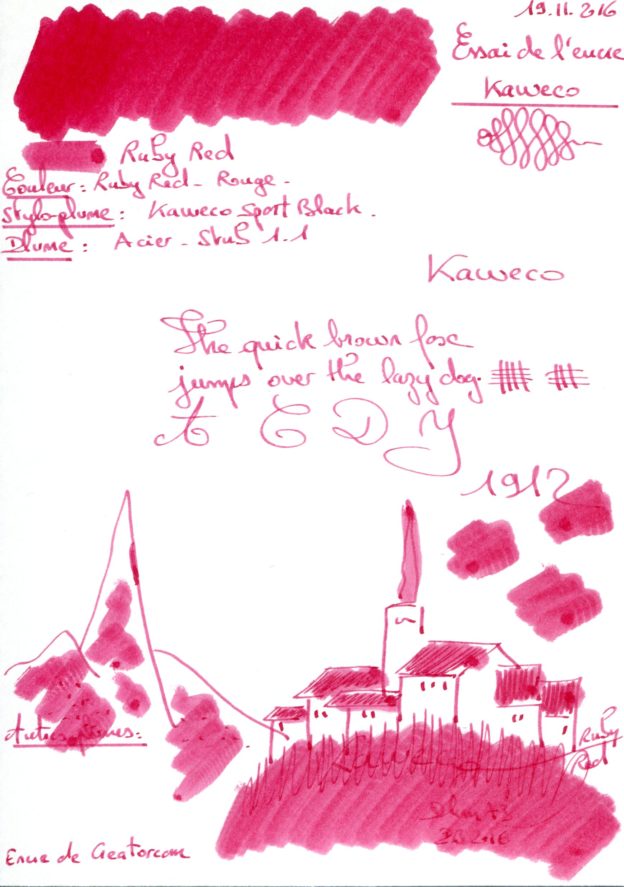 19.11.2016
Essai de l'encre
Kaweco
Ruby Red
Couleur : Ruby Red - Rouge.
Stylo-plume : Kaweco Sport Black.
Plume : Acier - Stub 1.1
Kaweco
The quick brown foxe
jumps over the lazy dog.
A C D Y
1912
Autres plumes :
Kaweco
Ruby
Red
2016
Encre de Creatorcom